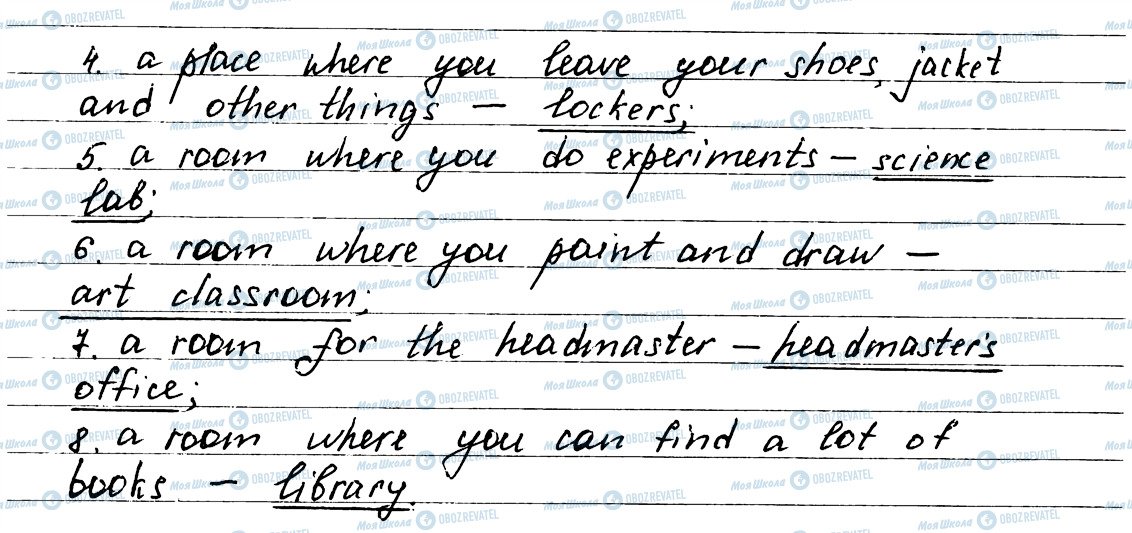 4. a place where you leave your shoes, jacket
and other things – lockers;
5. a room where you do experiments – science
lab;
6. a room where you paint and draw –
art classroom;
7. a room for the headmaster – headmaster's
office;
8. a room where you can find a lot of
books – library.